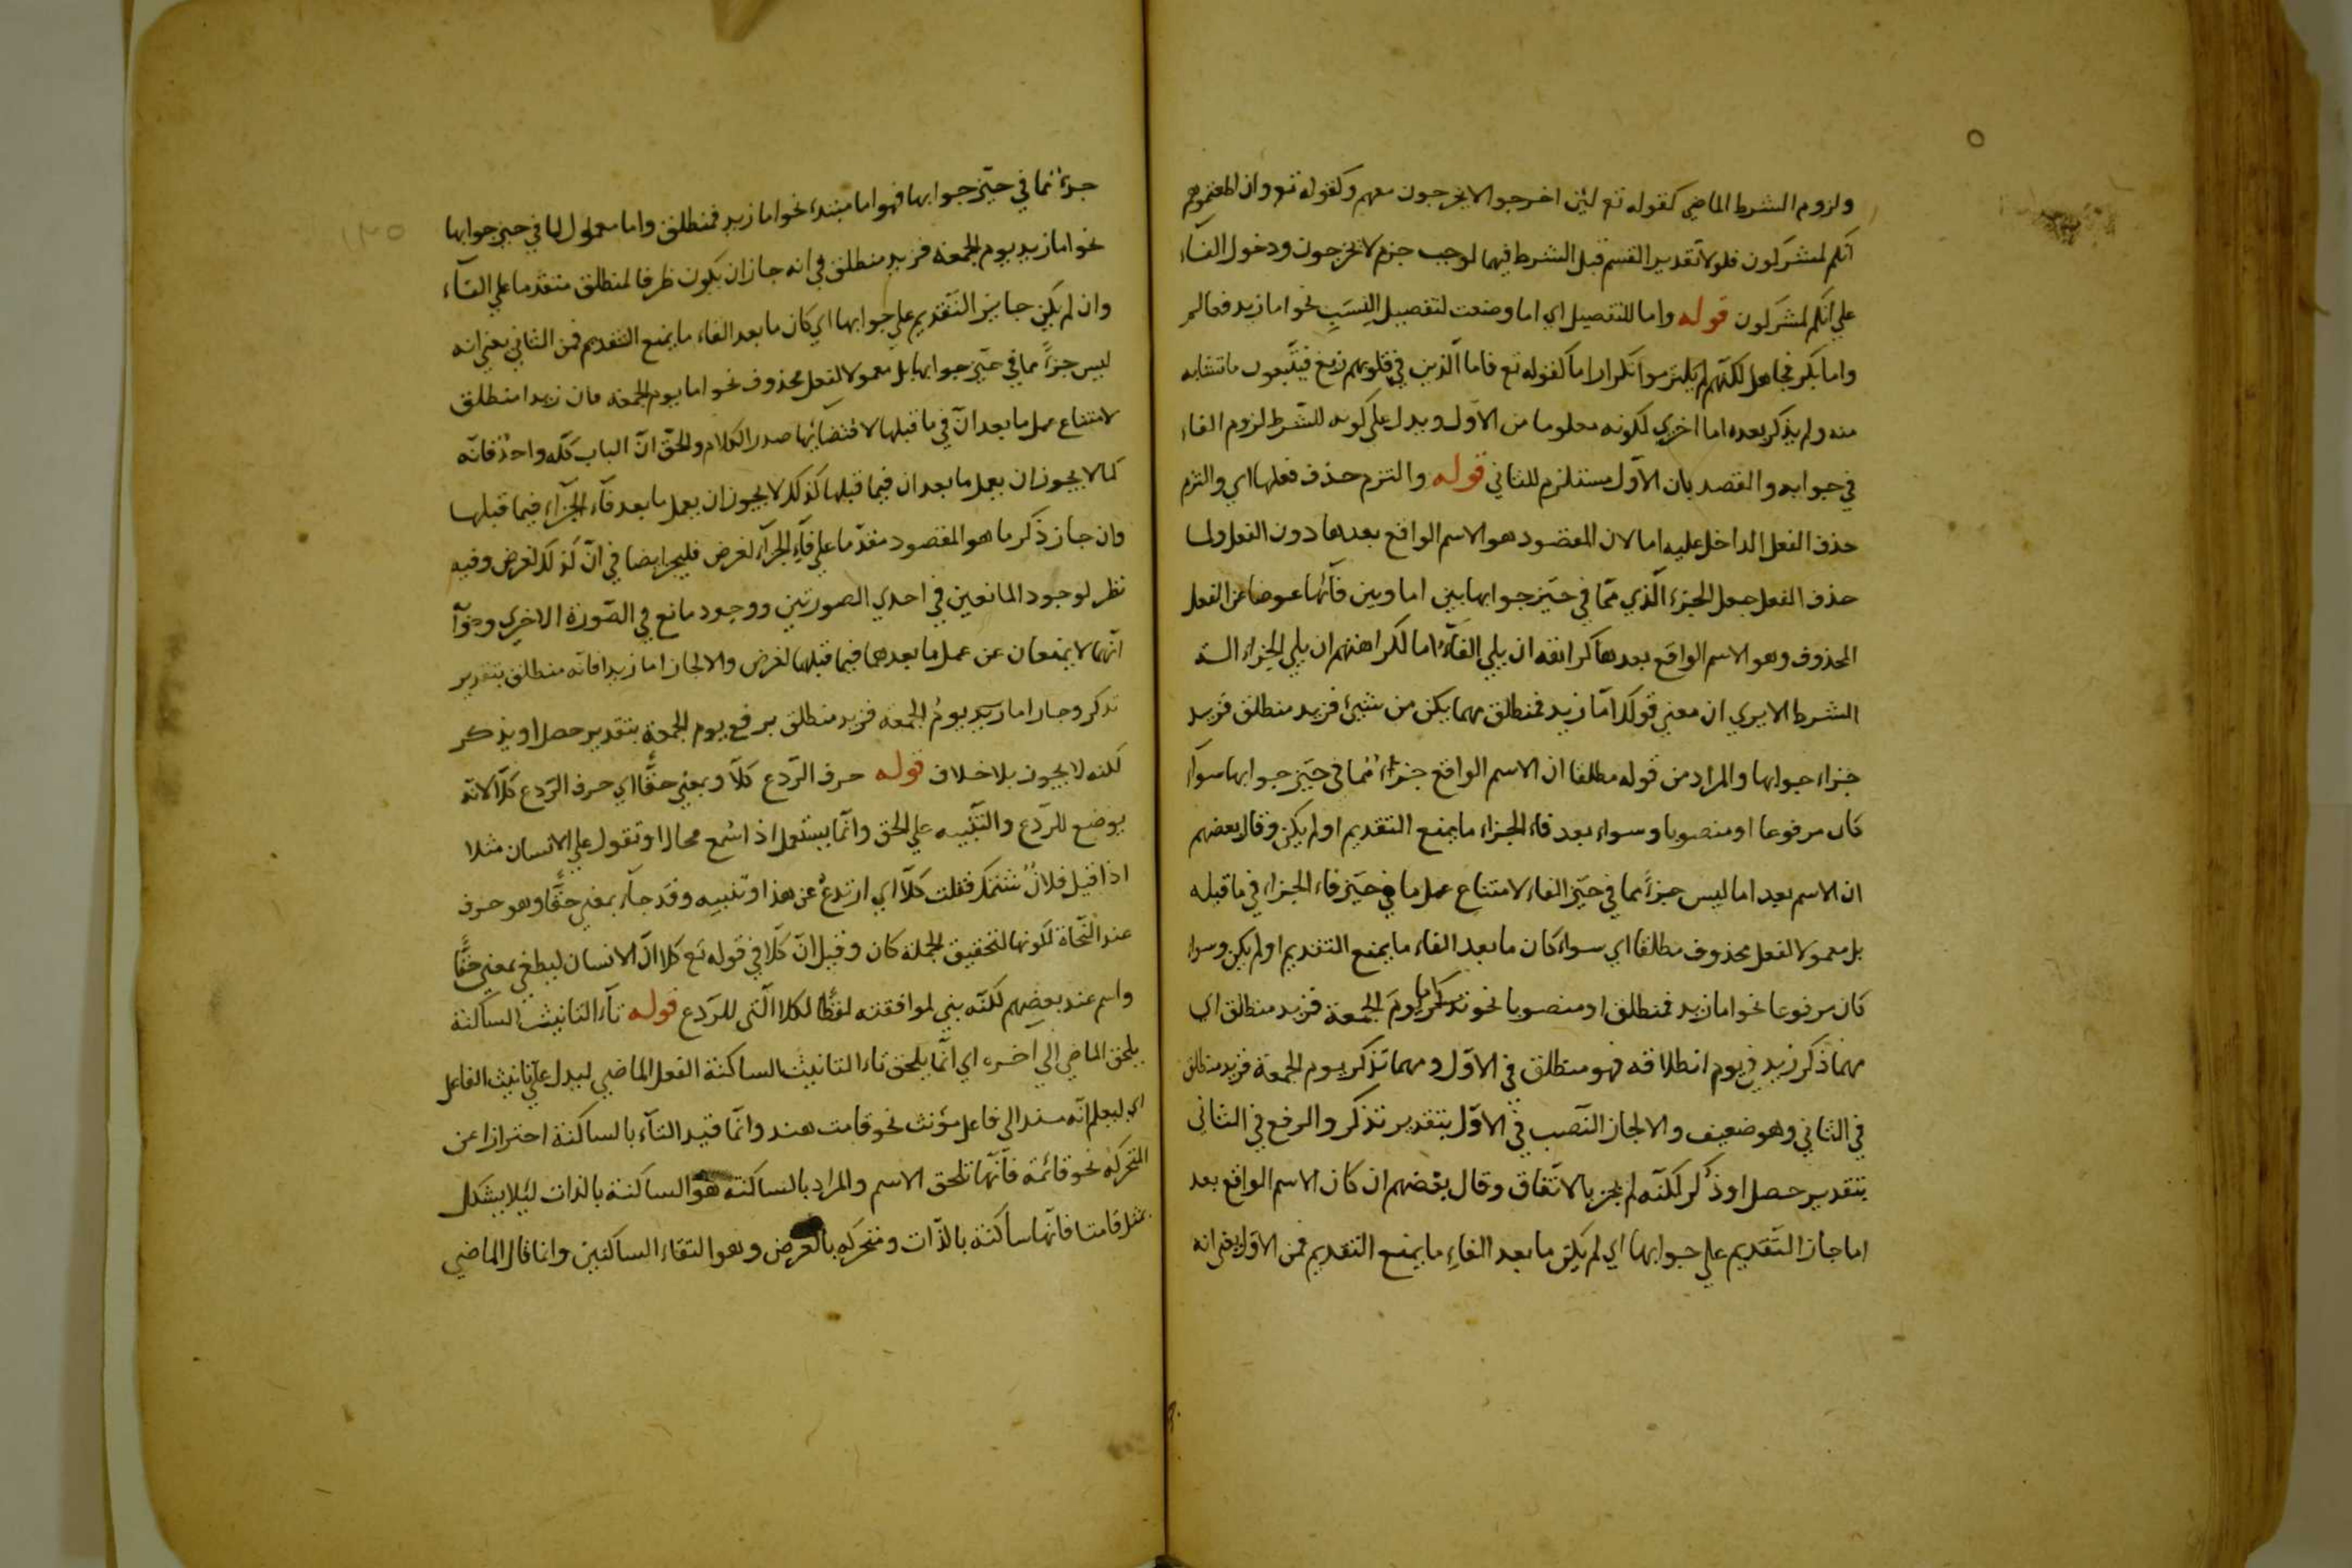 ولزوم الشرط الماضي كقوله تع لئن اخرجوا لا يخرجون معهم وكقوله تع وان اطعتموهم
انكم لمشركون فلولا تقدير القسم قبل الشرط فيهما لوجب جزم لا يخرجون ودخول الفاء
علي انكم لمشركون قوله واما للتفصيل اي اما وضعت لتفصيل النسب نحو اما زيد فعالم
واما بكر فجاهل لكنهم لم يلتزموا تكرار اما كقوله تع فاما الذين في قلوبهم زيغ فيتبعون ما تشابه
منه ولم يذكر بعده اما اخري لكونه معلوما من الاول ويدل علي كونه للشرط لزوم الفاء
في جوابه والقصد بان الاول مستلزم للثاني قوله والتزم حذف فعلها اي والتزم
حذف الفعل الداخل عليه اما لان المقصود هو الاسم الواقع بعدها دون الفعل ولما
حذف الفعل جعل الجزء الذي مما في حيز جوابها بين اما وبين فائها عوضا عن الفعل
المحذوف وهو الاسم الواقع بعدها كراهة ان يلي الفاء اما لكراهتهم ان يلي الجزاء الة
الشرط الا يري ان معني قولك اما زيد فمنطلق مهما يكن من شيئ فزيد منطلق فزيد
جزاء جوابها والمراد من قوله مطلقا ان الاسم الواقع جزء مما في حيز جوابها سواء
كان مرفوعا او منصوبا وسواء بعد فاء الجزاء ما يمنع التقديم او لم يكن وقال بعضهم
ان الاسم بعد اما ليس جزءً مما في حيز الفاء لامتناع عمل ما في حيز فاء الجزاء في ما قبله
بل معمولا لفعل محذوف مطلقا اي سواء كان ما بعد الفاء ما يمنع التقديم او لم يكن وسواء
كان مرفوعا نحو اما زيد فمنطلق او منصوبا نحو اما يومَ الجمعة فزيد منطلق اي
مهما ذكر زيد في يوم انطلاقه فهو منطلق في الاول ومهما تذكر يوم الجمعة فزيد منطلق
في الثاني وهو ضعيف والا لجاز النصب في الاول بتقدير تذكر والرفع في الثاني
بتقدير حصل او ذُكر لكنه لم يجز بالاتفاق وقال بعضهم ان كان الاسم الواقع بعد
اما جاز التقديم علي جوابها اي لم يكن ما بعد الفاء ما يمنع التقديم فمن الاول يعني انه
جزءٌ مما في حيز جوابها فهو اما مبتدء نحو اما زيد فمنطلق واما معمول لما في حيز جوابها
نحو اما زيد يوم الجمعة فزيد منطلق في انه جاز ان يكون ظرفا لمنطلق متقدما علي الفاء
وان لم يكن جايز التقديم علي جوابها اي كان ما بعد الفاء ما يمنع التقديم فمن الثاني يعني انه
ليس جزءً مما في حيز جوابها بل معمولا لفعل محذوف نحو اما يوم الجمعة فان زيدا منطلق
لامتناع عمل ما بعد ان في ما قبلها لاقتضائها صدر الكلام والحق ان الباب كله واحد فانه
كما لا يجوز ان يعمل ما بعد ان فيما قبلها كذلك لا يجوز ان يعمل ما بعد فاء الجزاء فيما قبلها
وان جاز ذكر ما هو المقصود مقدما علي فاء الجزاء لغرض فليجز ايضا في ان كذلك لغرض وفيه
نظر لوجود المانعين في احدي الصورتين ووجود مانع في الصورة الاخري
انهما لا يمنعان عن عمل ما بعدهما فيما قبلهما لغرض والا لجاز اما زيدا فانه منطلق بتقدير
تذكر وجاز اما زيد يومُ الجمعة فزيد منطلق برفع يوم الجمعة بتقدير حصل او يذكر
لكنه لا يجوز بلا خلاف قوله حرف الردع كلا وبمعني حقا اي حرف الردع كلا لانه
يوضع للردع والتنبيه علي الحق وانما يستعمل اذا سُمع محالا وتقول علي الانسان مثلا
اذا قيل فلانٌ شتمك فقلت كلا اي ارتدع عن هذا وتنبيه وقد جاء بمعني حقا وهو حرف
عند النحاة لكونها لتحقيق الجملة كان وقيل ان كلا في قوله تع كلا ان الانسان ليطغي بمعني حقا
واسم عند بعضهم لكنه بني لموافقته لفظا لكلا التي للردع قوله تاء التانيث الساكنة
يلحق الماضي الي اخره اي انما يلحق تاء التانيث الساكنة الفعل الماضي ليدل علي تانيث الفاعل
اي ليعلم انه مسند الي فاعل مؤنث نحو قامت هند وانما قيد التاء بالساكنة احترازا عن
المتحركه نحو قائمة فانها تلحق الاسم والمراد بالساكنة هو الساكنة بالذات ليلا يشكل
بمثل قامتا فانها ساكنة بالذات ومتحركه بالعرض وهو التقاء الساكنين وانما قال الماضي